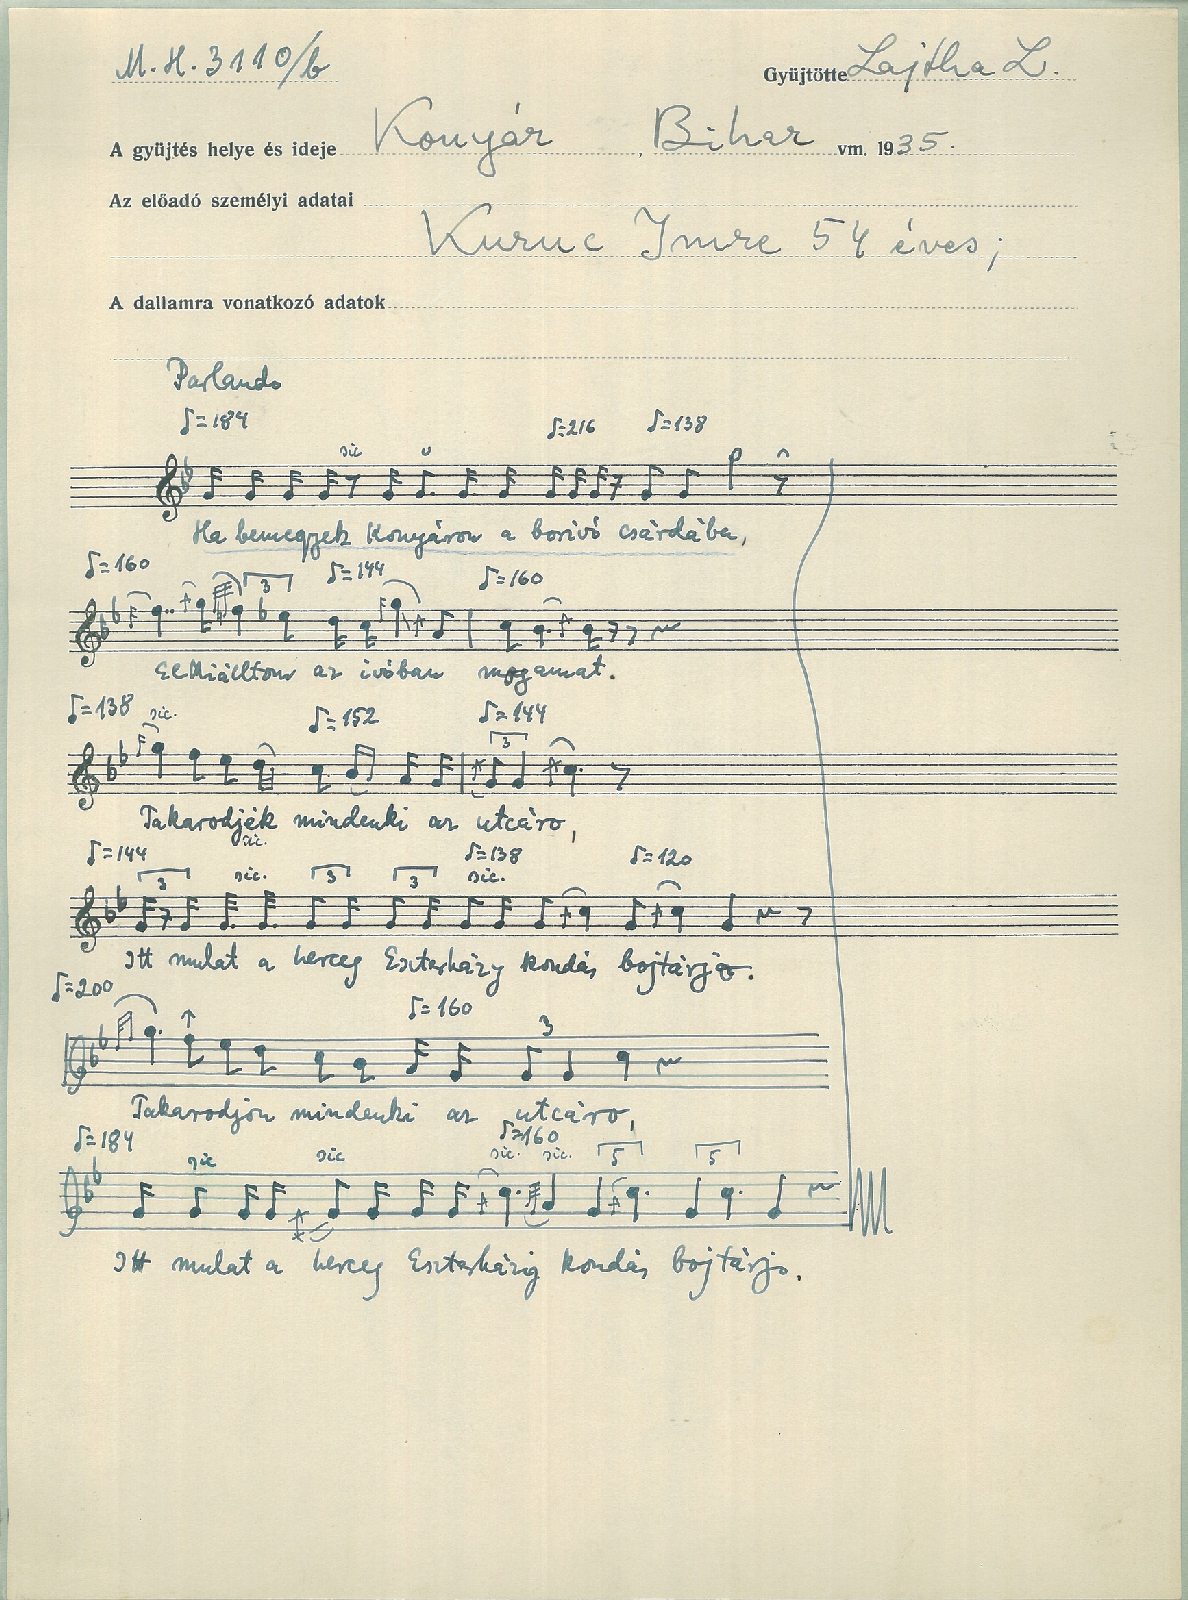 M. H. 3110/b
Gyüjtötte Lajtha L.
A gyüjtés helye és ideje Konyár, Bihar vm. 1935.
Az előadó személyi adatai
Kuruc Imre 54 éves;
A dallamra vonatkozó adatok
Parlando
♪=184 ♪=216 ♪=138
sic
Ha bemegyek Konyáron a borivó csárdába,
♪=160 ♪=144 ♪=160
3
Elkiáltom az ivóban magamat.
♪=138 sic. ♪=152 ♪=144
3
Takarodjék mindenki az utcáro,
sic.
♪=144 ♪=138 ♪=120
3 sic. 3 3 sic.
Itt mulat a herceg Eszterházy kondás bojtárjo.
♪=200 ♪=160
3
Takarodjon mindenki az utcáro,
♪=184 ♪=160
sic sic sic. sic. 5 5
Itt mulat a herceg Eszterházig kondás bojtárjo.